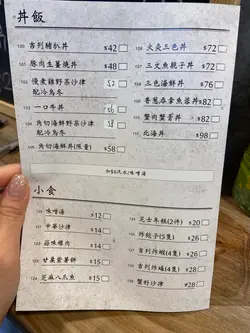 丼飯
100 吉列豬扒丼 $42
101 豚肉生薑燒丼 $48
102 慢煮雞野菜沙律
配冷烏冬
103 一口牛丼
104 角切海鮮野菜沙律
配冷烏冬 $58
105 角切海鮮丼(限量) $58
106 火炙三色丼 $72
107 三文魚親子丼 $72
108 三色海鮮丼 $76
109 香蔥吞拿魚蓉丼 $82
110 蟹肉蟹膏丼 $82
111 北海丼 $98
加$6跟水/味噌湯
小食
120 味噌湯 $12
121 中華沙律 $14
122 蒜味螺肉 $14
123 甘粟紫薯餅 $15
124 芝麻八爪魚 $15
125 芝士年糕(2件) $20
126 炸餃子(5隻) $26
127 吉列炸蝦(4隻) $28
128 吉列炸蠔(4隻) $28
129 蟹籽沙律 $28